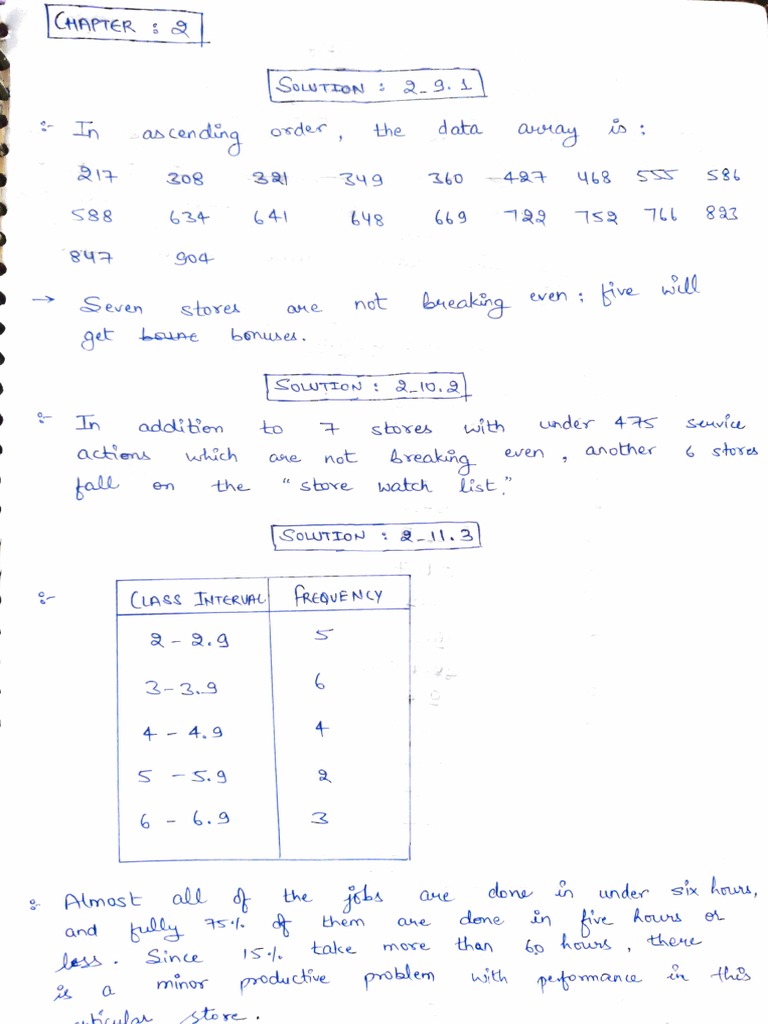 CHAPTER : 2
SOLUTION : 2_9.1
:- In ascending order, the data array is :
217 308 321 349 360 427 468 555 586
588 634 641 648 669 722 752 766 823
847 904
→ Seven stores are not breaking even ; five will
get bonuses.
SOLUTION : 2_10.2
:- In addition to 7 stores with under 475 service
actions which are not breaking even, another 6 stores
fall on the "store watch list."
SOLUTION : 2_11.3
:-
CLASS INTERVAL FREQUENCY
2 - 2.9 5
3 - 3.9 6
4 - 4.9 4
5 - 5.9 2
6 - 6.9 3
:- Almost all of the jobs are done in under six hours,
and fully 75% of them are done in five hours or
less. Since 15% take more than 60 hours, there
is a minor productive problem with performance in this
store.